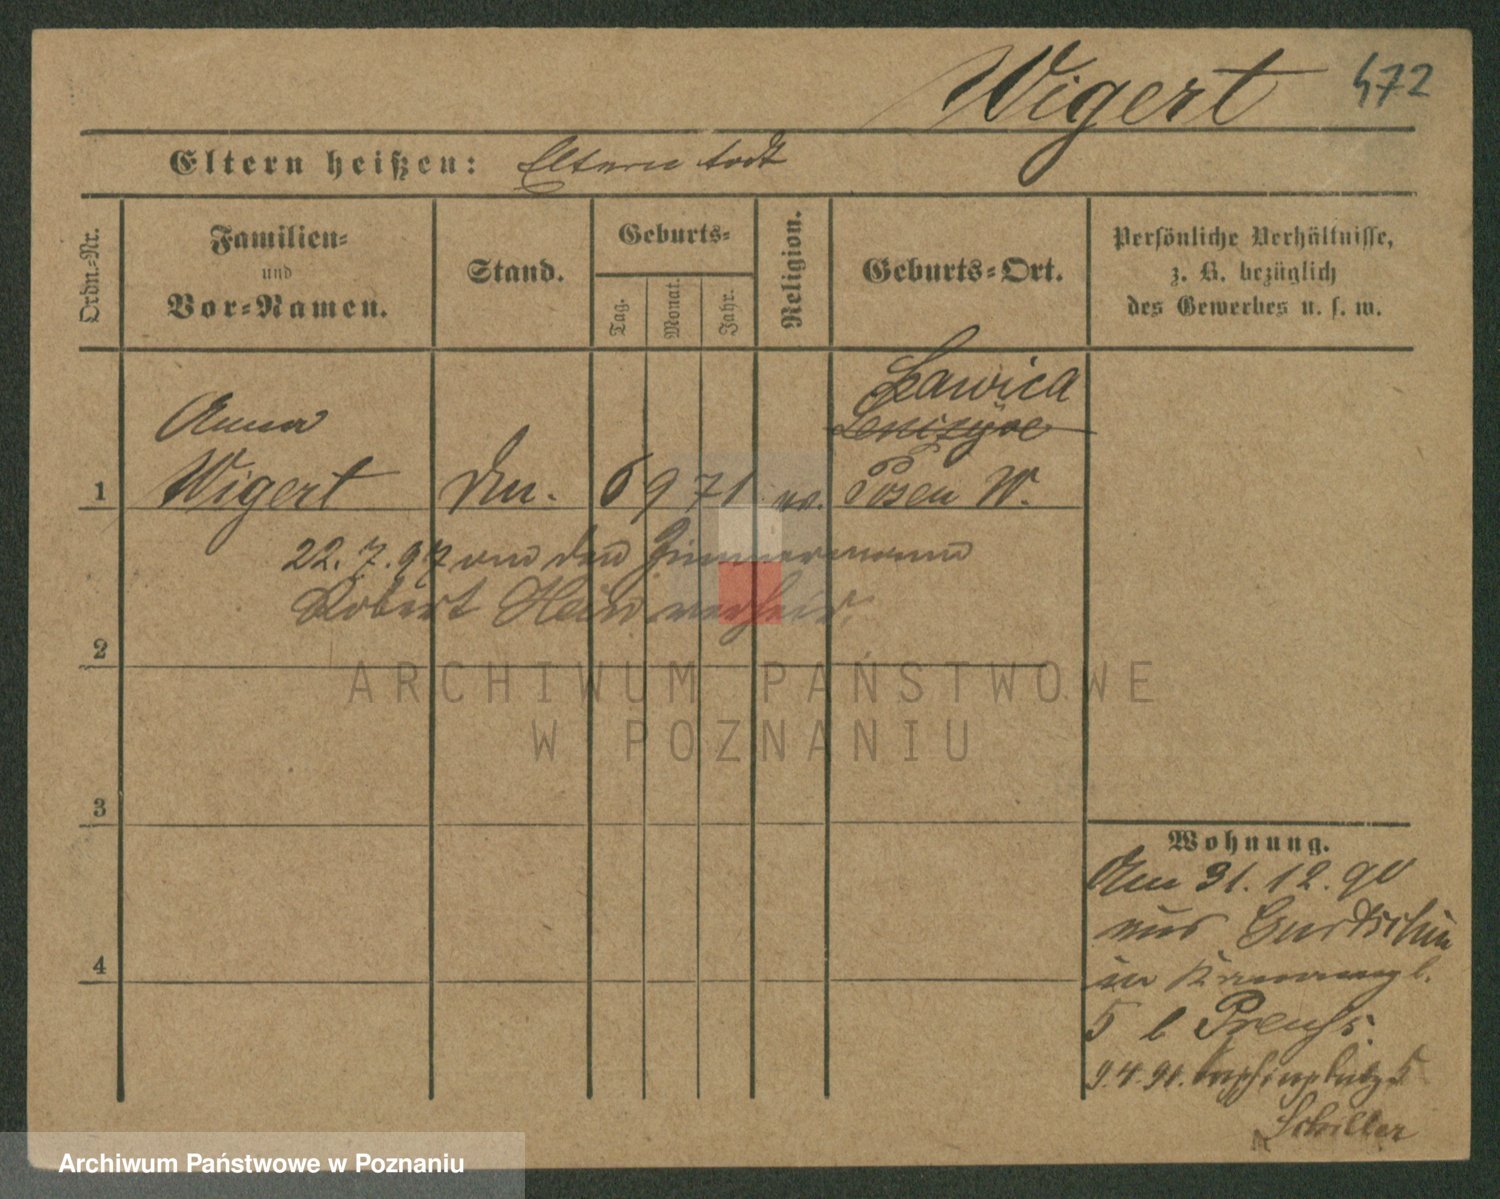 Wigert 472
Eltern heißen: Eltern todt
Ordn.-Nr.
Familien-
und
Vor-Namen.
Stand.
Geburts-
Tag.
Monat.
Jahr.
Religion.
Geburts-Ort.
Persönliche Verhältnisse,
z. B. bezüglich
des Gewerbes u. s. w.
Anna
Lawica
1 Wigert 6 9 71 ev. Posen W.
22. 7. 97 an den Zimmermann
Robert Hein verheir.
2
3
4
ARCHIWUM PAŃSTWOWE
W POZNANIU
Wohnung.
Am 31.12.90
aus Gurtschin
in
5 b Preuss
9.4.91.
Schiller
Archiwum Państwowe w Poznaniu